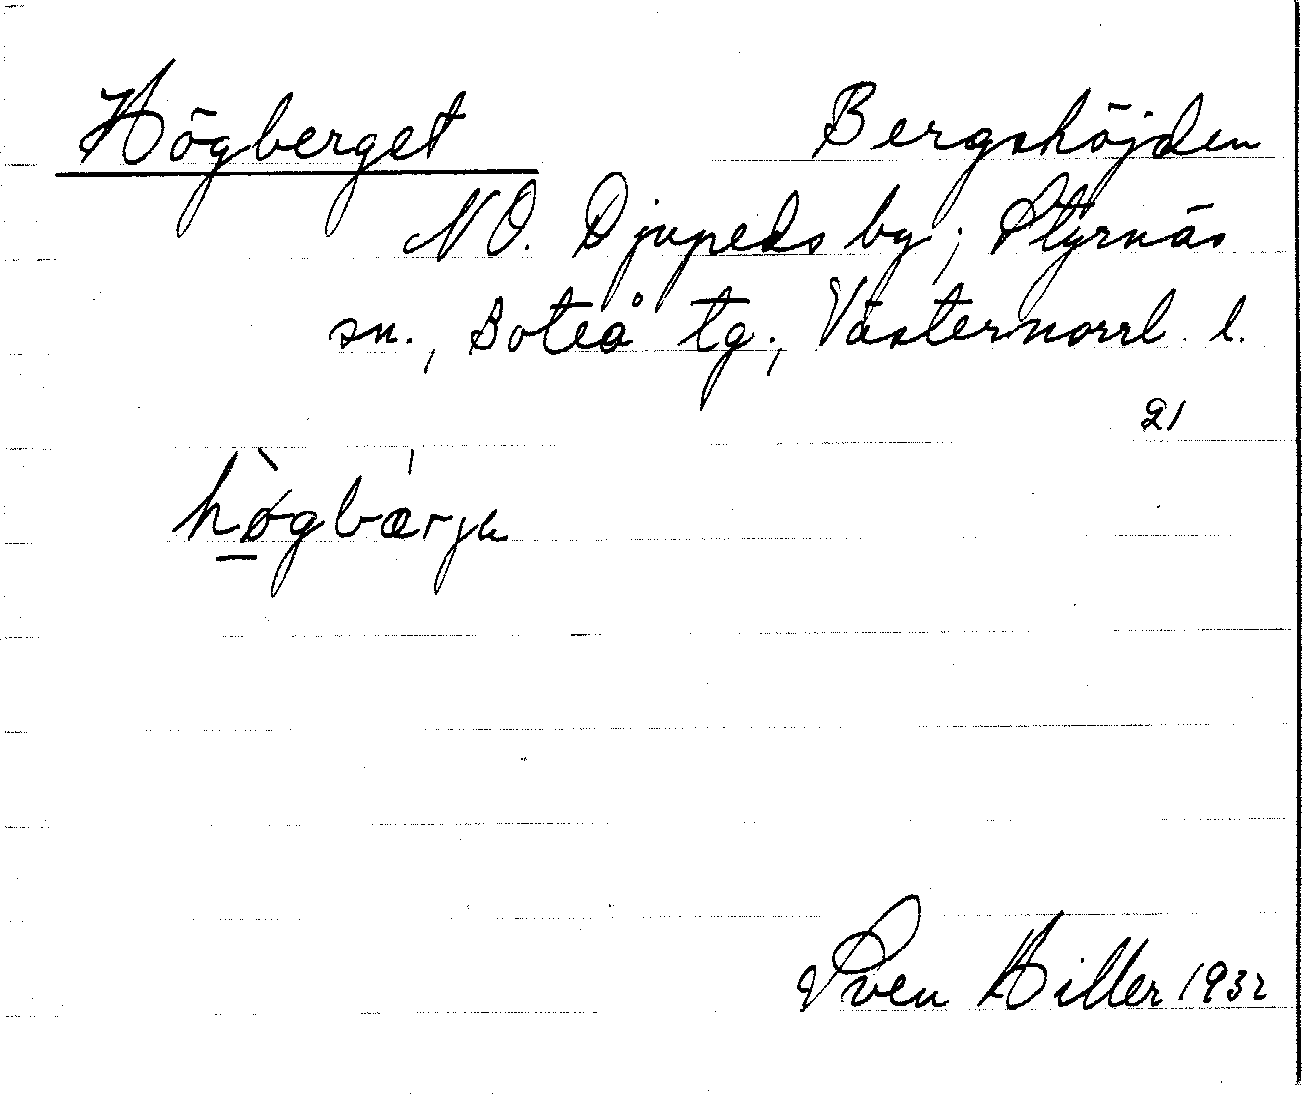 Högberget Bergshöjden
NO. Djupeds by; Styrnäs
sn., Boteå tg., Västernorrl. l.
21
hø̲̀gbá̍rje
Sven Hiller 1932